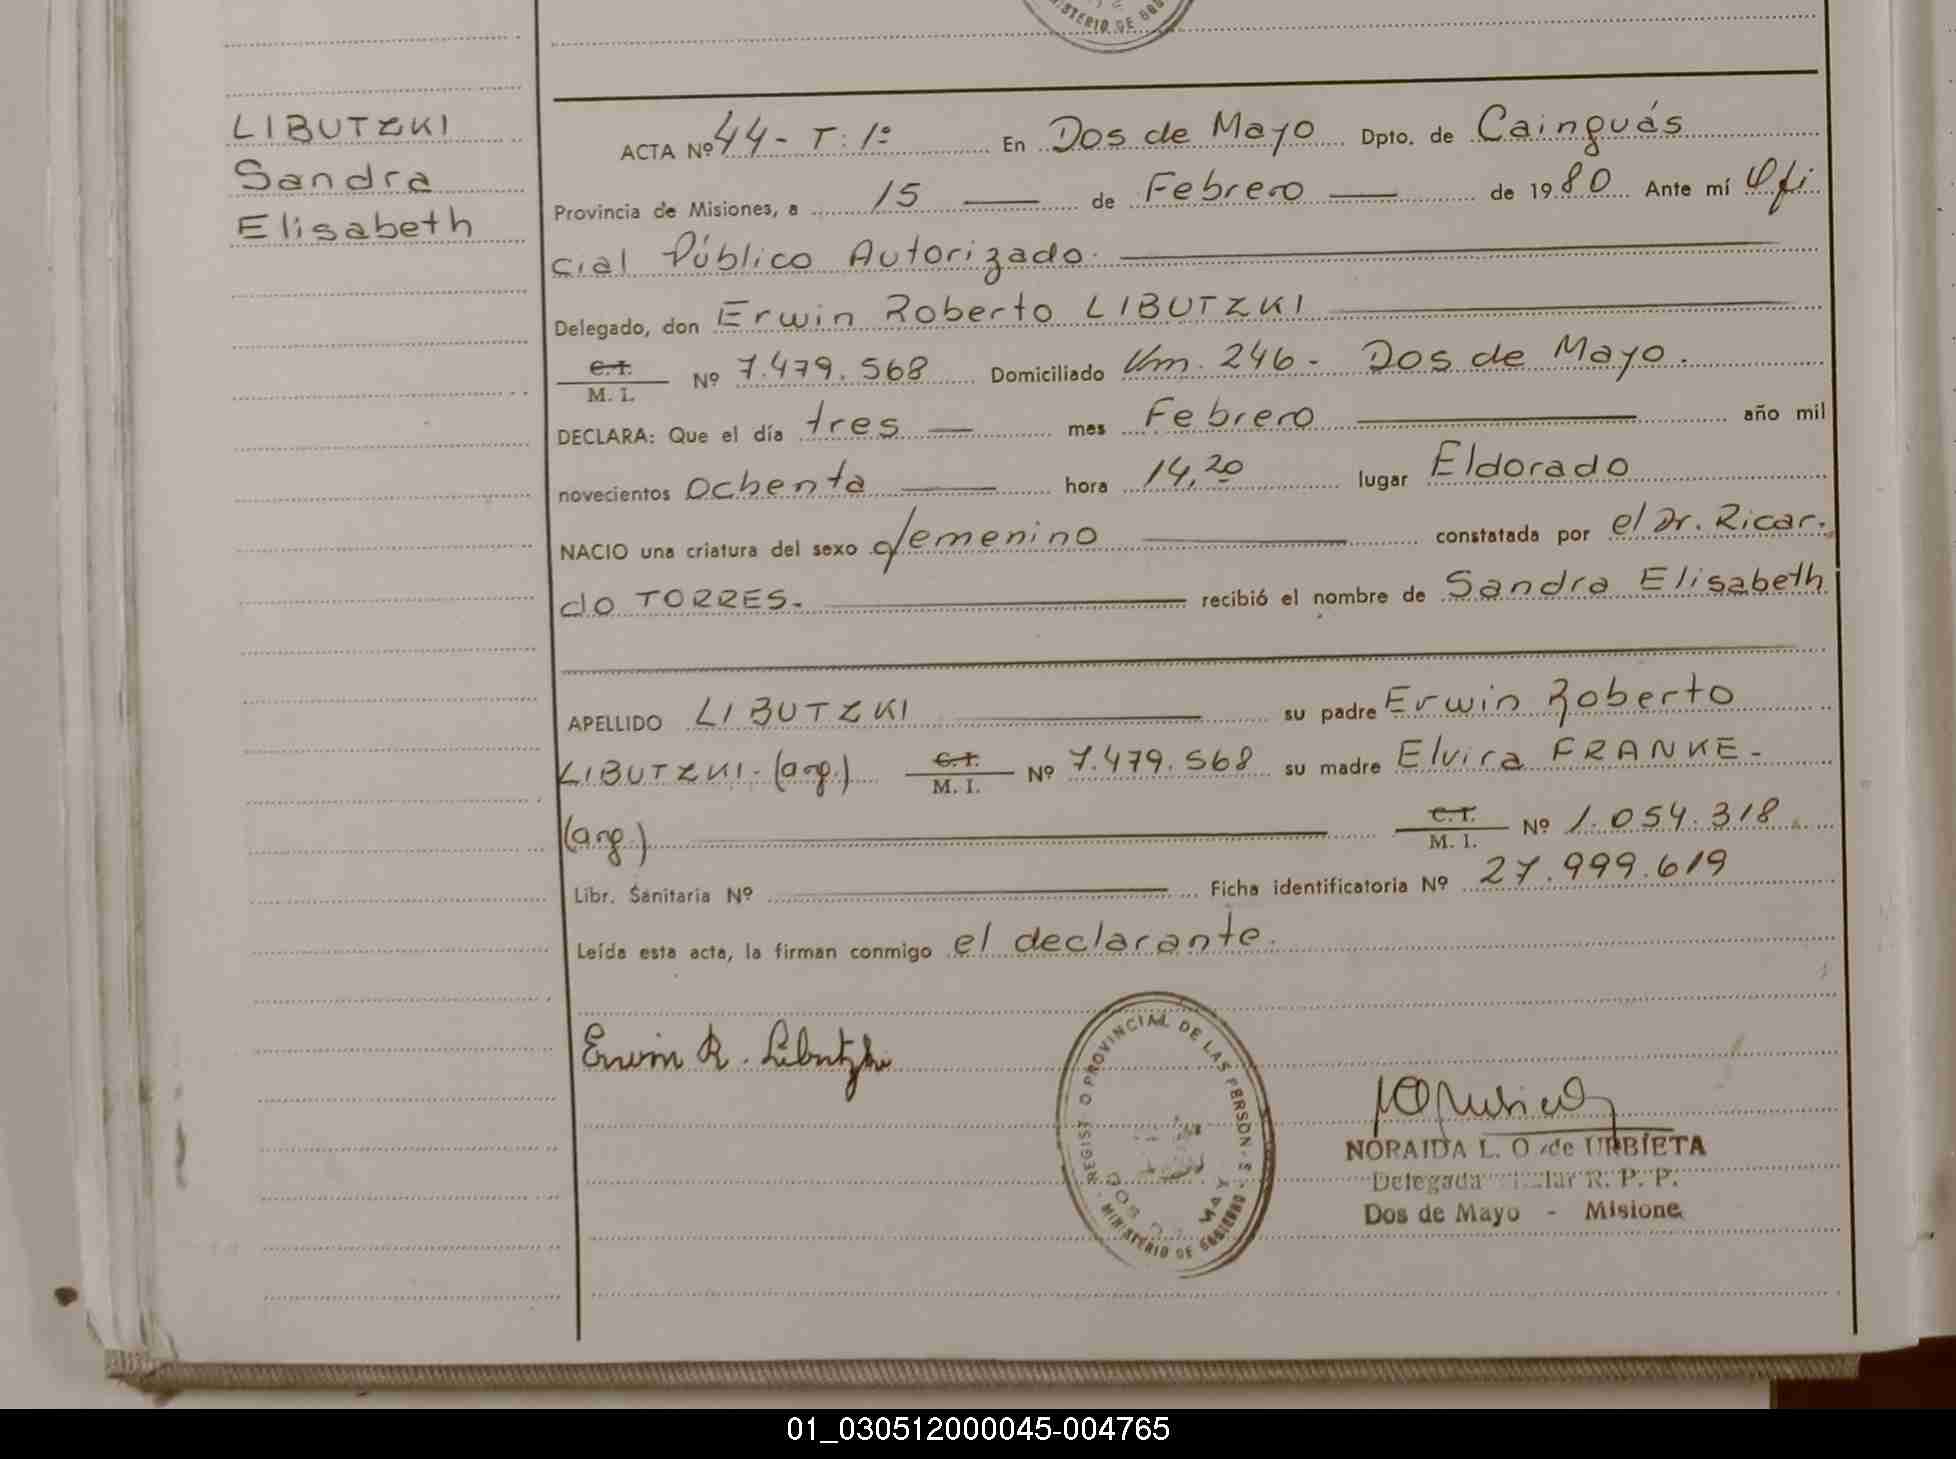 MINISTERIO DE GOB
LIBUTZKI
Sandra
Elisabeth
ACTA Nº 44 - T: 1º En Dos de Mayo Dpto. de Cainguás
Provincia de Misiones, a 15 de Febrero de 1980 Ante mí Ofi
cial Público Autorizado.
Delegado, don Erwin Roberto LIBUTZKI
C.I.
M. I. Nº 7.479.568 Domiciliado Km. 246 - Dos de Mayo.
DECLARA: Que el día tres mes Febrero año mil
novecientos ochenta hora 14,20 lugar Eldorado
NACIO una criatura del sexo femenino constatada por el Dr. Ricar.
do TORRES. recibió el nombre de Sandra Elisabeth
APELLIDO LIBUTZKI su padre Erwin Roberto
LIBUTZKI - (arg.) C.I. M. I. Nº 7.479.568 su madre Elvira FRANKE -
(arg.) C.I. M. I. Nº 1.054.318
Libr. Sanitaria Nº Ficha identificatoria Nº 27.999.619
Leída esta acta, la firman conmigo el declarante.
Erwin R. Libutzki
REGIST O PROVINCIAL DE LAS PERSON S
MINISTERIO DE GOBIERNO
DOS MAY
NORAIDA L. O. de URBIETA
Delegada R. P. P.
Dos de Mayo - Misione
01_030512000045-004765